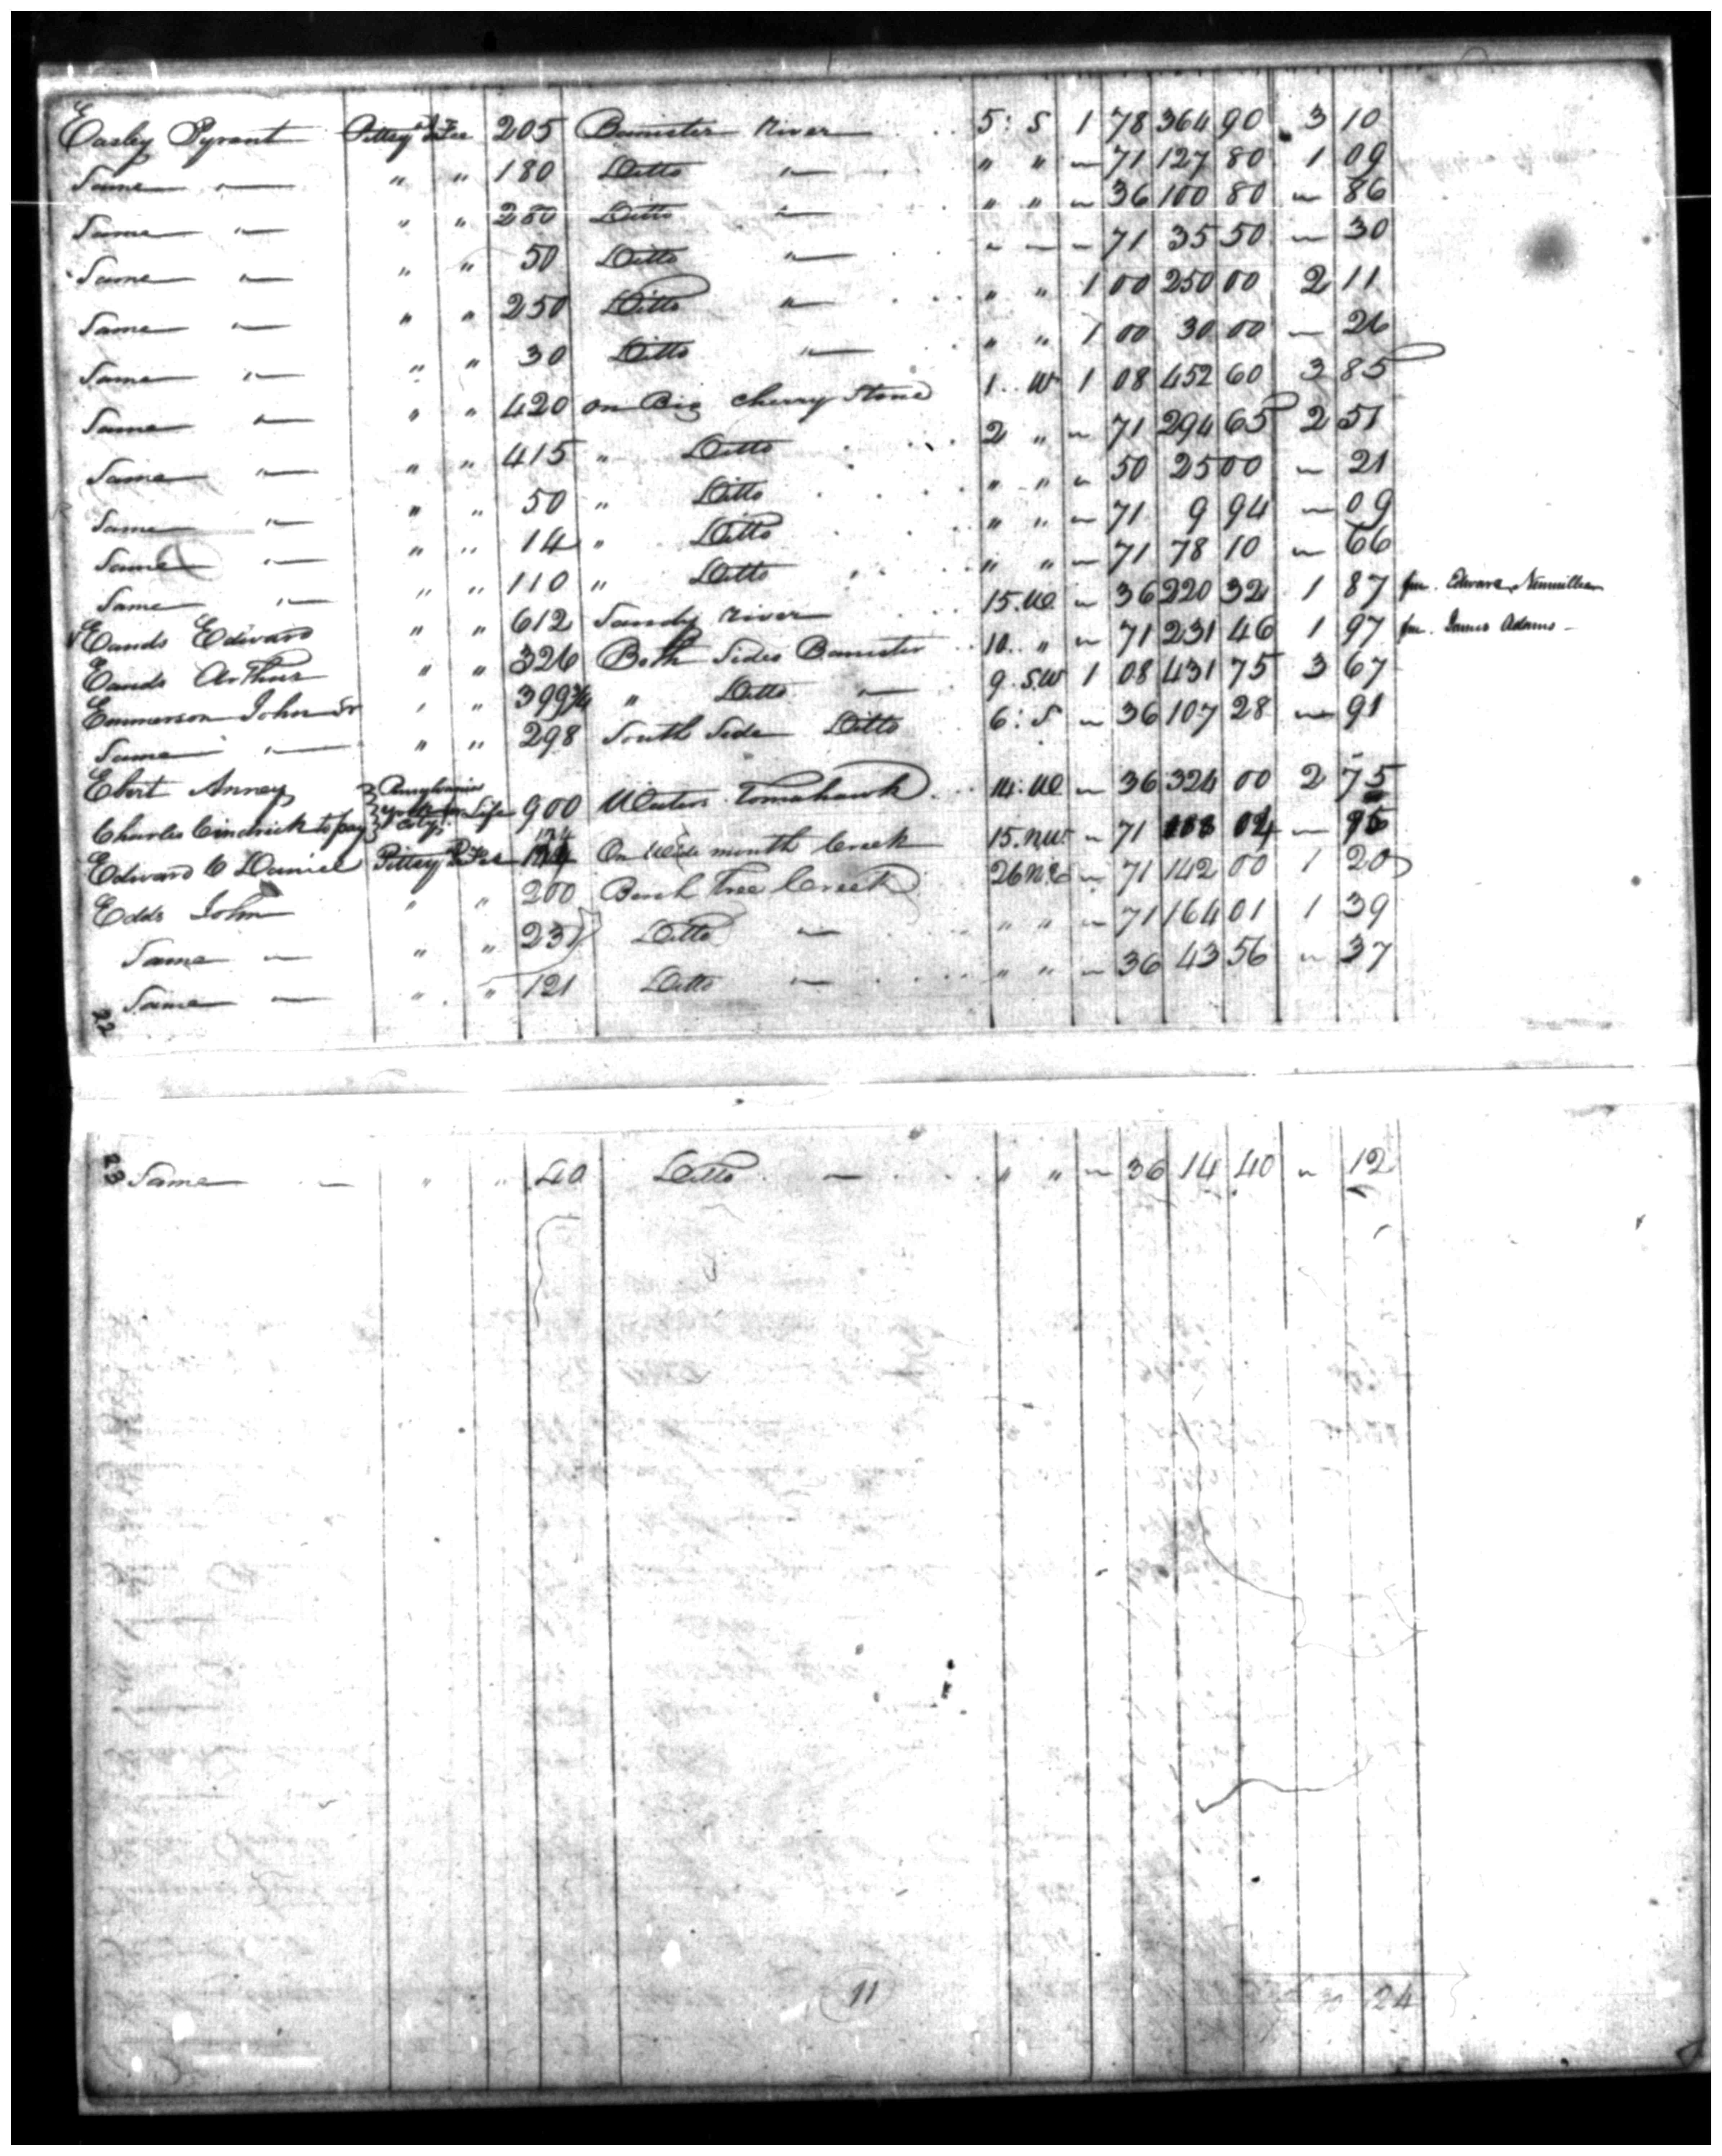 Easley Pyrant Pittsyl<sup>a</sup> Fee 205 Banister River 5 : S 1 78 364 90 3 10
Same " " " 180 Ditto " " " - 71 127 80 1 09
Same " " " 280 Ditto " " " - 36 100 80 - 86
Same " " " 50 Ditto " " - - 71 35 50 - 30
Same " " " 250 Ditto " " " 1 00 250 00 2 11
Same " " " 30 Ditto " " " 1 00 30 00 - 26
Same " " " 420 on Big Cherry Stone 1 .. W 1 08 452 60 3 85
Same " " " 415 " Ditto 2 " - 71 294 65 2 51
Same " " " 50 " Ditto " " - 50 25 00 - 21
Same " " " 14 " Ditto " " - 71 9 94 - 09
Same " " " 110 " Ditto " " - 71 78 10 - 66
Eands Edward " " 612 Sandy River 15. W - 36 220 32 1 87 fm. Edward
Eands Arthur " " 326 Both Sides Banister 10 .. " - 71 231 46 1 97 fm. James Adams -
Emmerson John Sr " " 399¾ " Ditto 9 . S.W 1 08 431 75 3 67
Same " " " 298 South Side Ditto 6 : S - 36 107 28 - 91
Ebert Anney Pensylvania
Charles Cindrick to pay Coty. Life 900 Waters Tomahawk 14 : W - 36 324 00 2 75
Edward C Daniel Pittsyl<sup>a</sup> Fee On mouth Creek 15. n.w. - 71 04 - 95
Edds John " " 200 Birch Tree Creek 26 N.E - 71 142 00 1 20
Same - " " 231 Ditto - " " - 71 164 01 1 39
Same - " " 121 Ditto - " " - 36 43 56 " 37
22
23 Same - " " 40 Ditto - " " - 36 14 40 " 12
11
24